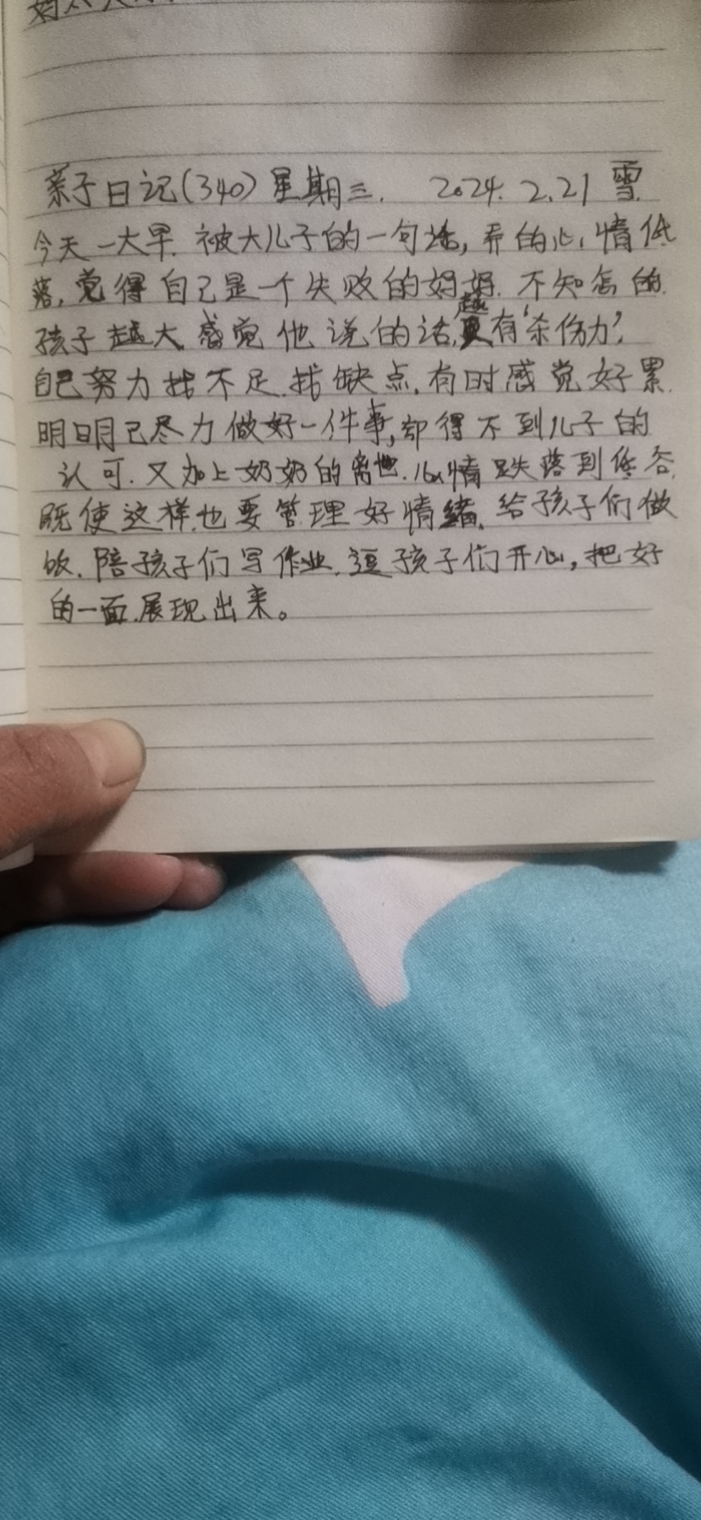 亲子日记(340)星期三. 2024.2.21 雪.
今天一大早.被大儿子的一句话,弄的心情低
落,觉得自己是一个失败的妈妈.不知怎的.
孩子越大.感觉他说的话,越有‘杀伤力’,
自己努力找不足.找缺点.有时感觉好累.
明明已尽力做好一件事,却得不到儿子的
认可.又加上奶奶的离世.心情跌落到低谷.
既使这样.也要管理好情绪.给孩子们做
饭.陪孩子们写作业.逗孩子们开心,把好
的一面.展现出来。